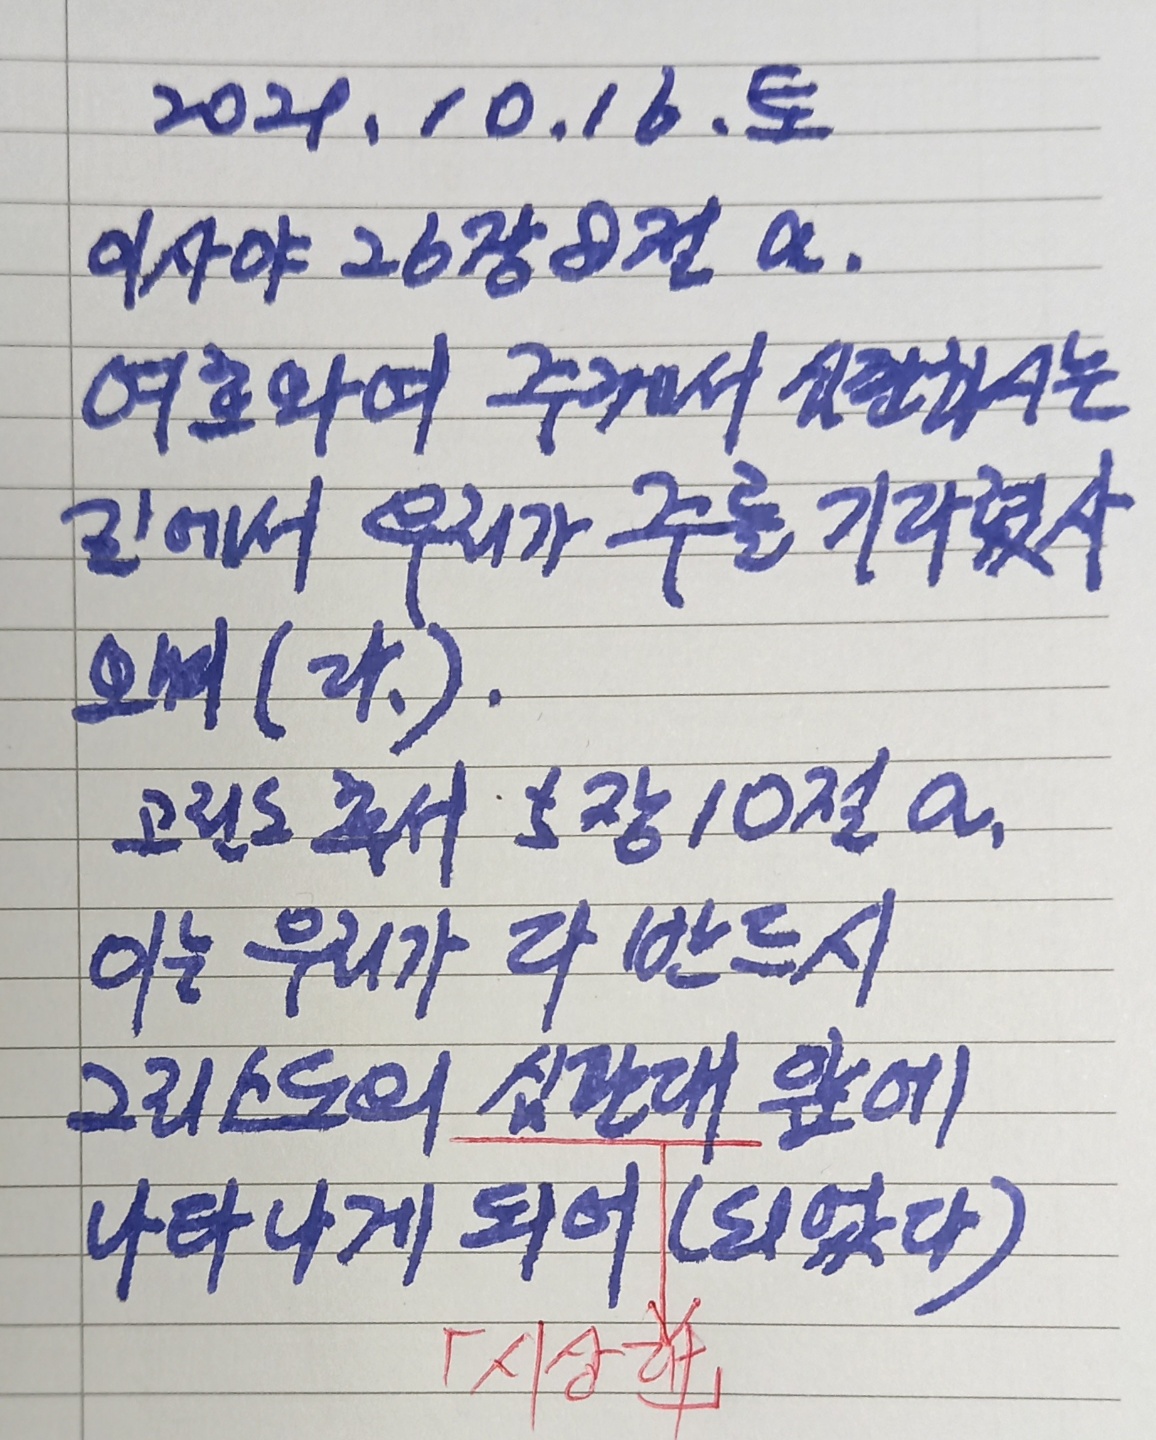 2021. 10. 16. 토
이사야 26장 8절 a.
여호와여 주께서 심판하시는
길에서 우리가 주를 기다렸사
오며(다.).
고린도 후서 5장 10절 a.
이는 우리가 다 반드시
그리스도의 심판대 앞에
나타나게 되어 (되었다)
「시상